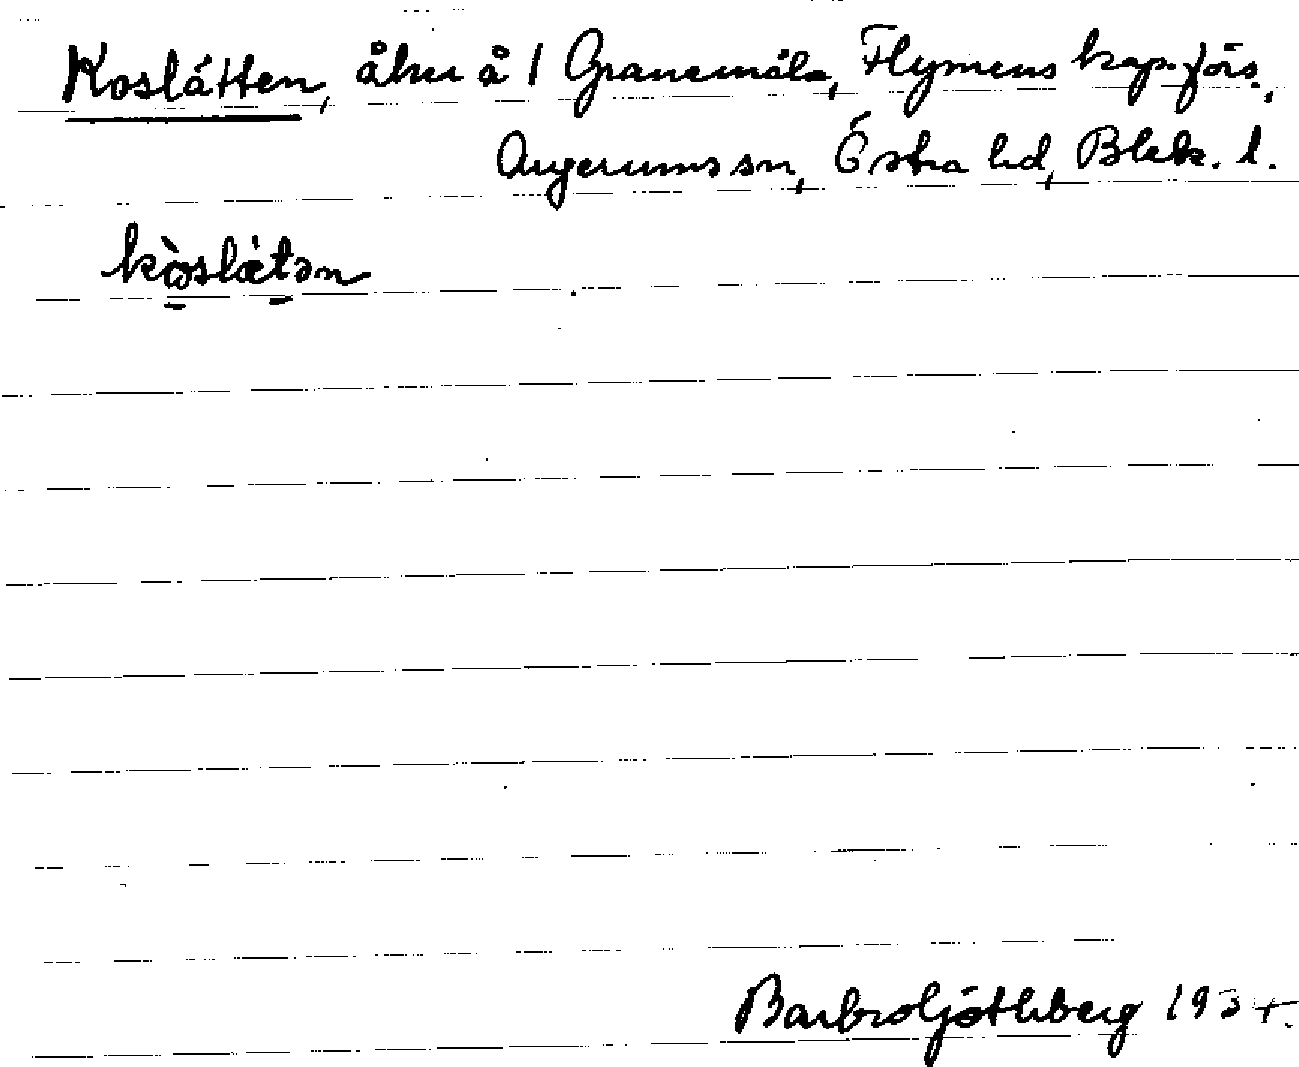 Koslätten, åker å 1 Granemåla, Flymens kap.förs.,
Augerums sn, Östra hd, Blek. l.
kòslǽtən
Barbro Ljöthberg 1934.